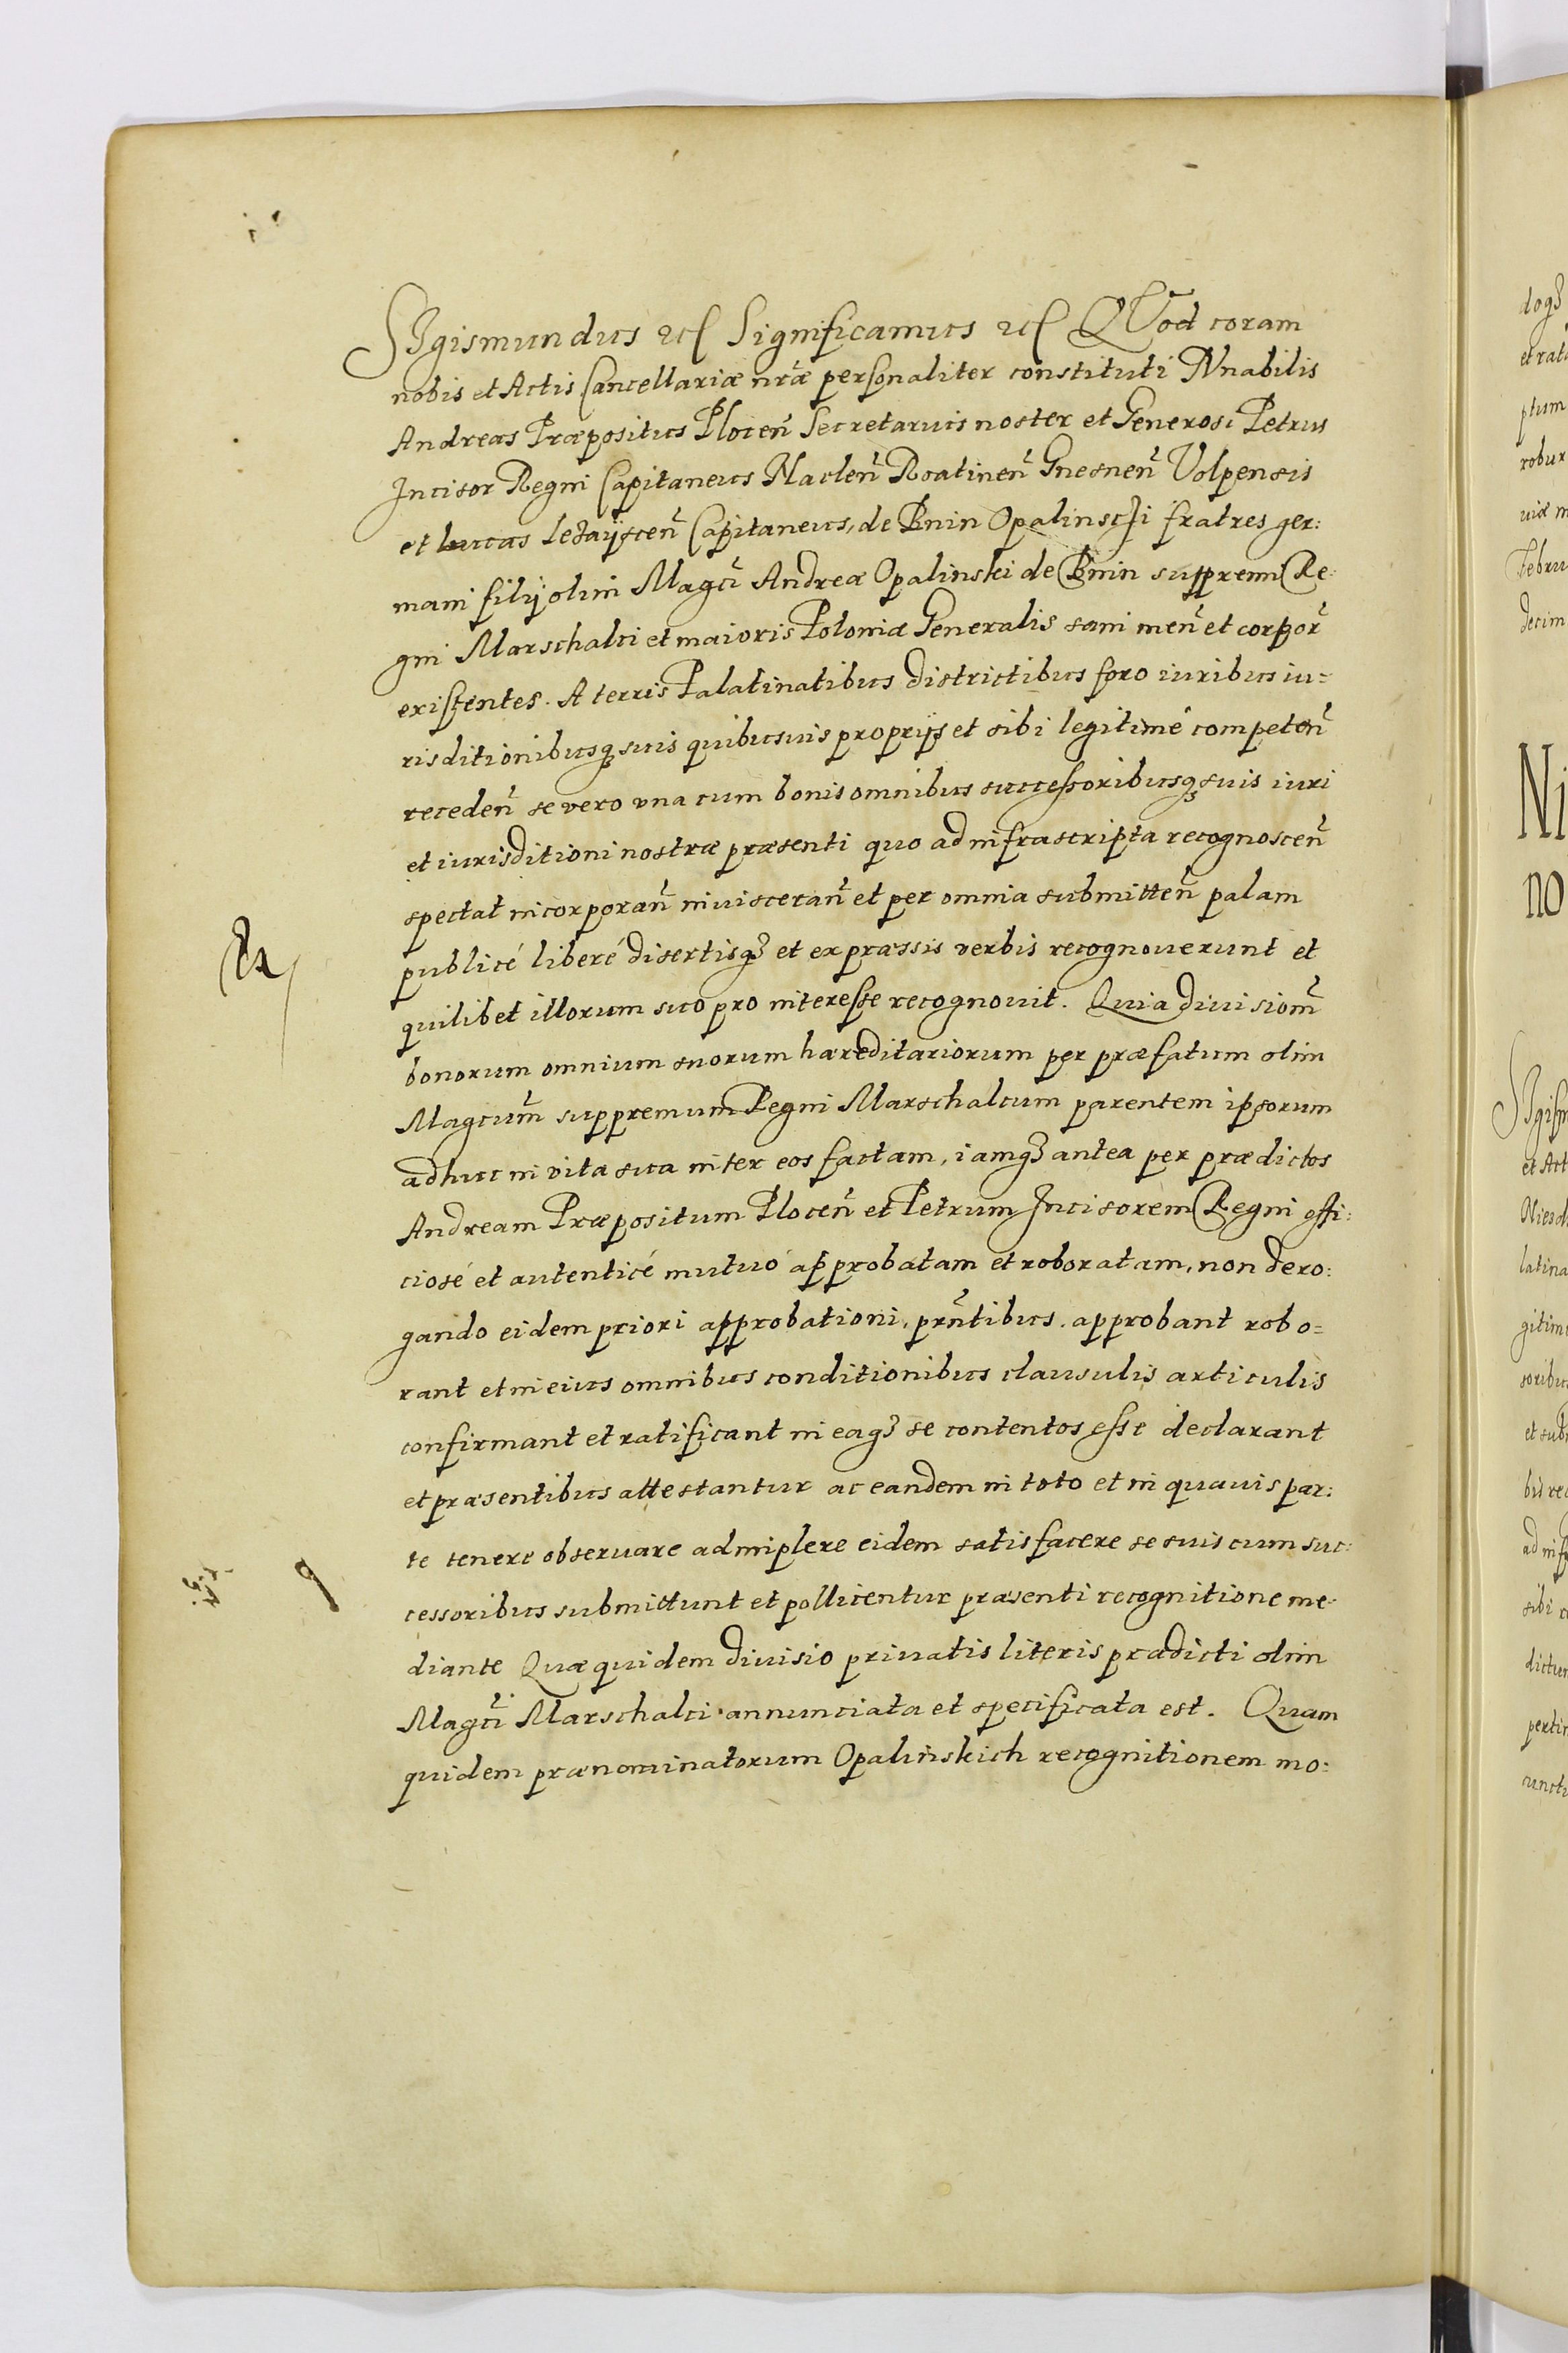 SIgismundus etc Significamus etc QVod coram
nobis et Actis Cancellariæ nræ personaliter constituti Vnabilis
Andreas Præpositus Plocen̄ Secretarius noster et Generosi Petrus
Incisor Regni Capitaneus Naclen̄ Roatinen̄ Gnesnen̄ Volpensis
et Lucas Lezayscen̄ Capitaneus, de Bnin Opalinscÿ fratres ger:
mani filij olim Magci Andreæ Opalinski de Bnin suppremi Re:
gni Marschalci et maioris Poloniæ Generalis sani men̄ et corpor̄
existentes. A terris Palatinatibus districtibus foro iuribus iu=
risditionibusq₃ suis quibusuis proprijs et sibi legitimé competen̄
receden̄ se vero vna cum bonis omnibus successoribusq₃ suis iuri
et iurisditioni nostræ præsenti quo ad infrascripta recognoscen̄
spectat incorporan̄ inuisceran̄ et per omnia submitten̄ palam
publicé liberé disertisq₃ et expræssis verbis recognouerunt et
quilibet illorum suo pro interesse recognouit. Quia diuisiom̄
bonorum omnium suorum hæreditariorum per præfatum olim
Magcum̄ suppremum Regni Marschalcum parentem ipsorum
adhuc in vita sua inter eos factam, iamq₃ antea per prædictos
Andream Præpositum Plocen̄ et Petrum Incisorem Regni offi:
ciosé et autenticé mutuó approbatam et roboratam, non dero:
gando eidem priori approbationi, prn̄tibus. approbant robo=
rant et in eius omnibus conditionibus clausulis articulis
confirmant et ratificant in eaq₃ se contentos esse declarant
et præsentibus attestantur ac eandem in toto et in quauis par:
te tenere obseruare adimplere eidem satisfacere se suis cum suc:
cessoribus submittunt et pollicentur præsenti recognitione me:
diante Quæ quidem diuisio priuatis literis prædicti olim
Magci Marschalci annunciata et specificata est. Quam
quidem prænominatorum Opalinskich recognitionem mo: